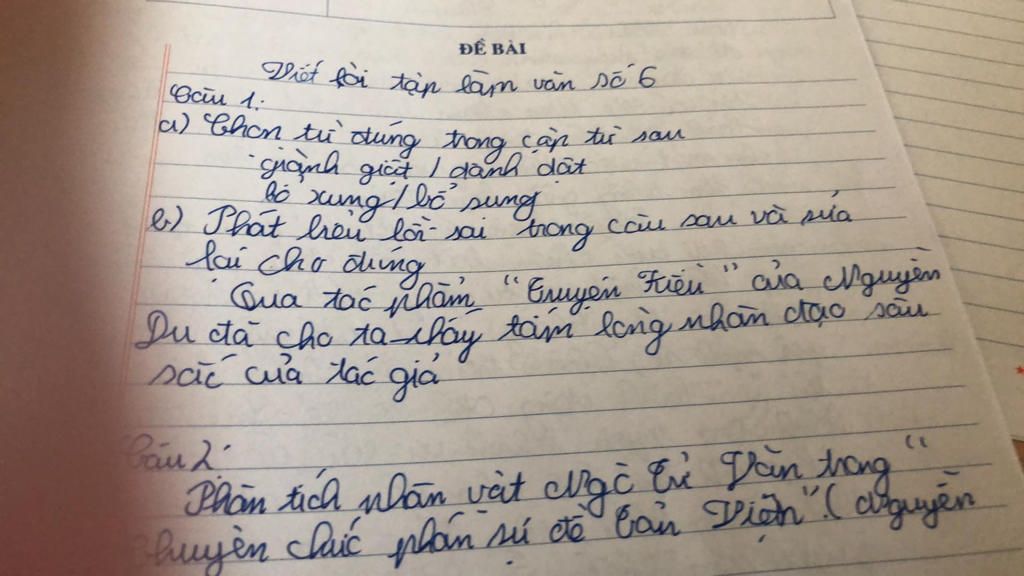 ĐỀ BÀI
Viết bài tập làm văn số 6
Câu 1:
a) Chọn từ đúng trong cặp từ sau
giành giật / dành dật
bổ xung / bổ sung
b) Phát hiện lỗi sai trong câu sau và sửa
lại cho đúng
Qua tác phẩm "Truyện Kiều" của Nguyễn
Du đã cho ta thấy tấm lòng nhân đạo sâu
sắc của tác giả
Câu 2:
Phân tích nhân vật Ngô Tử Văn trong "
Chuyện chức phán sự đền Tản Viên" (Nguyễn